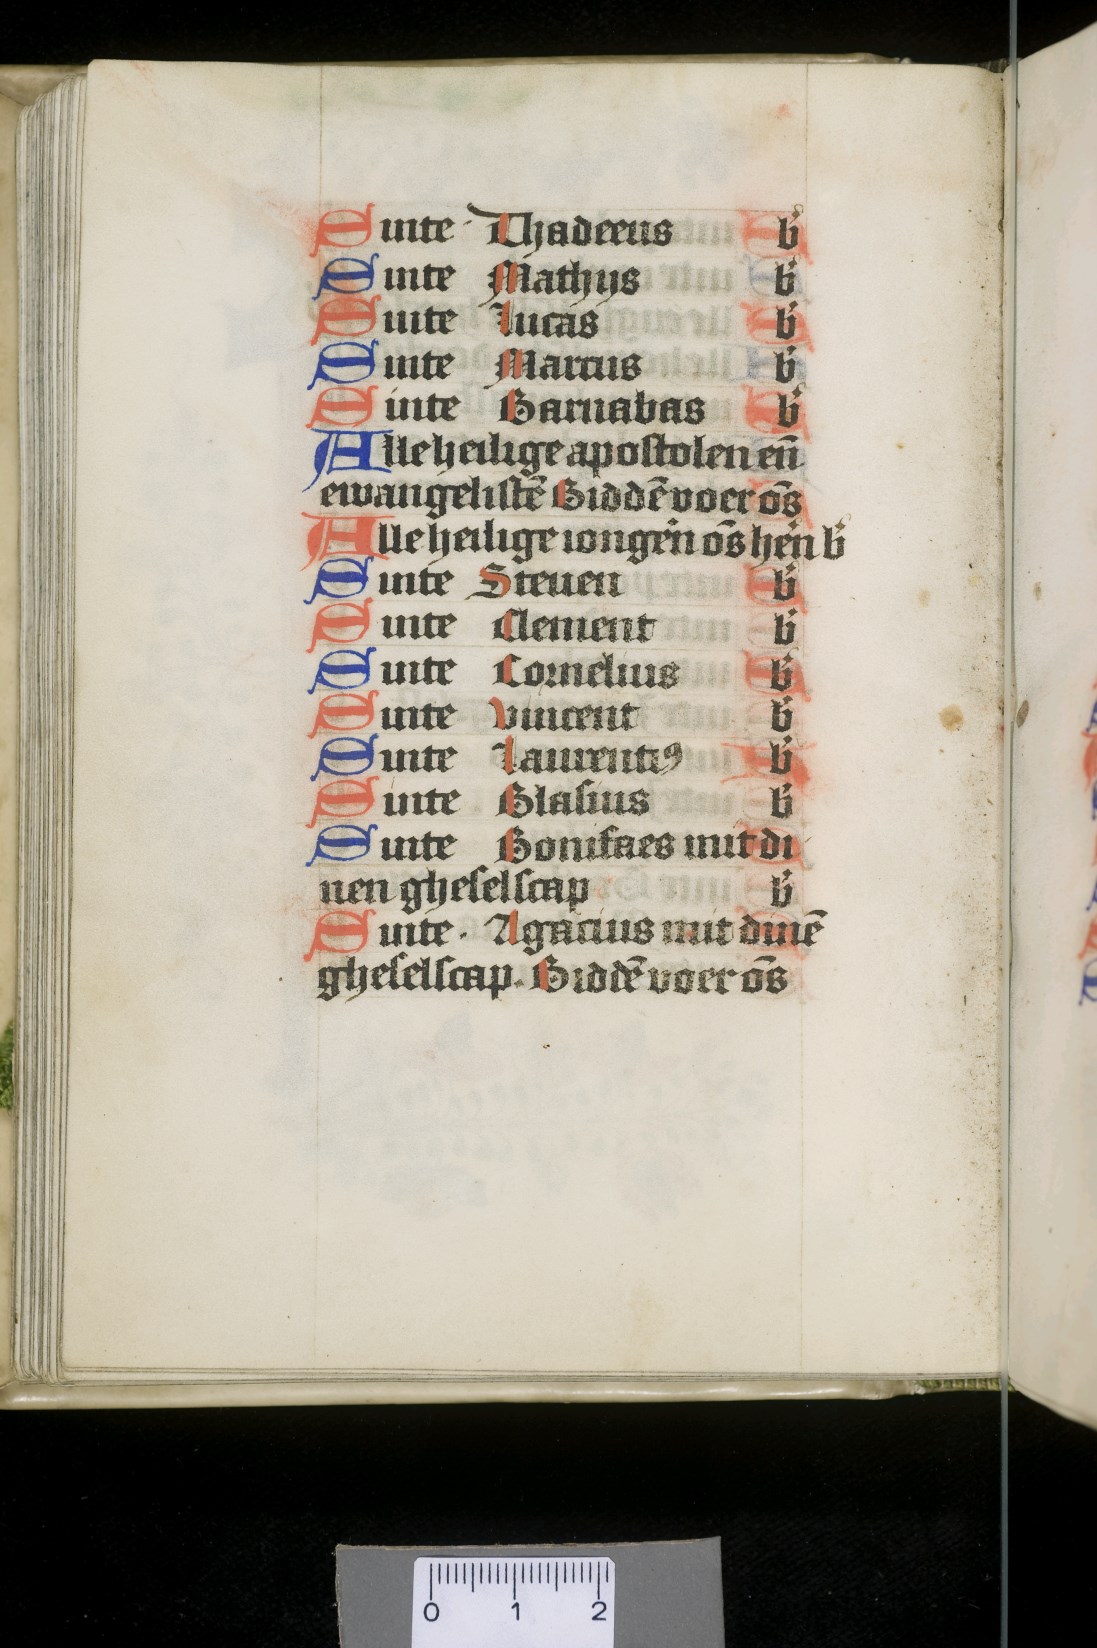 Sinte Thadeeus b̛
Sinte Mathijs b̛
Sinte Lucas b̛
Sinte Marcus b̛
Sinte Barnabas b̛
Alle heilige apostolen en̄
ewangelistē Biddē voer ōs
Alle heilige iongerēn ōs herēn b̛
Sinte Steuen b̛
Sinte Clement b̛
Sinte Cornelius b̛
Sinte vincent b̛
Sinte Laurentiꝰ b̛
Sinte Blasius b̛
Sinte Bonifaes mit di
nen gheselscap b̛
Sinte Agacius mit dinē
gheselscap. Biddē voer ōs
0 1 2